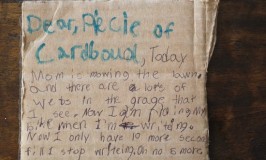 Dear, Piecie of
Cardboud, Today
Mom is mowing the lawn.
and there are a lots of
we ts in the grage that
I see. Now I am
bike when I'm writing.
Now I only have 10 more secon
till I stop writeing. On no 5 more.